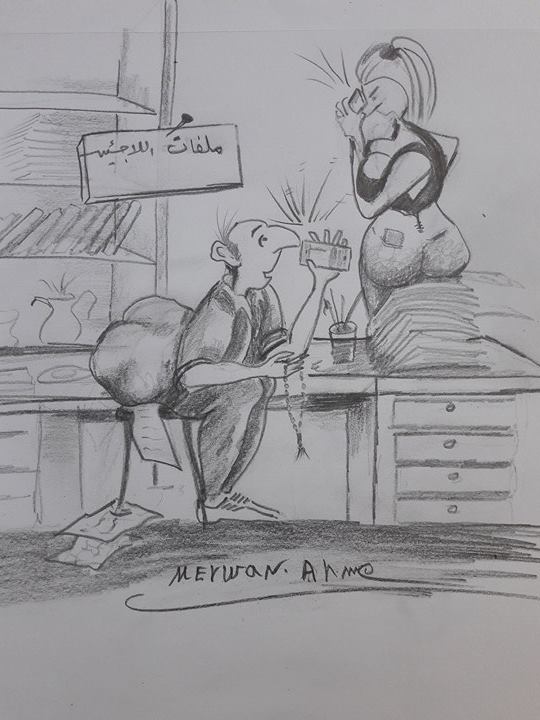 ملفات اللاجئين
Merwan. Ahmo